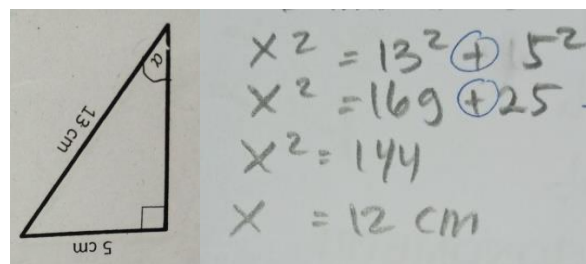 α
13 cm
5 cm
x² = 13² + 5²
x² = 169 + 25
x² = 144
x = 12 cm